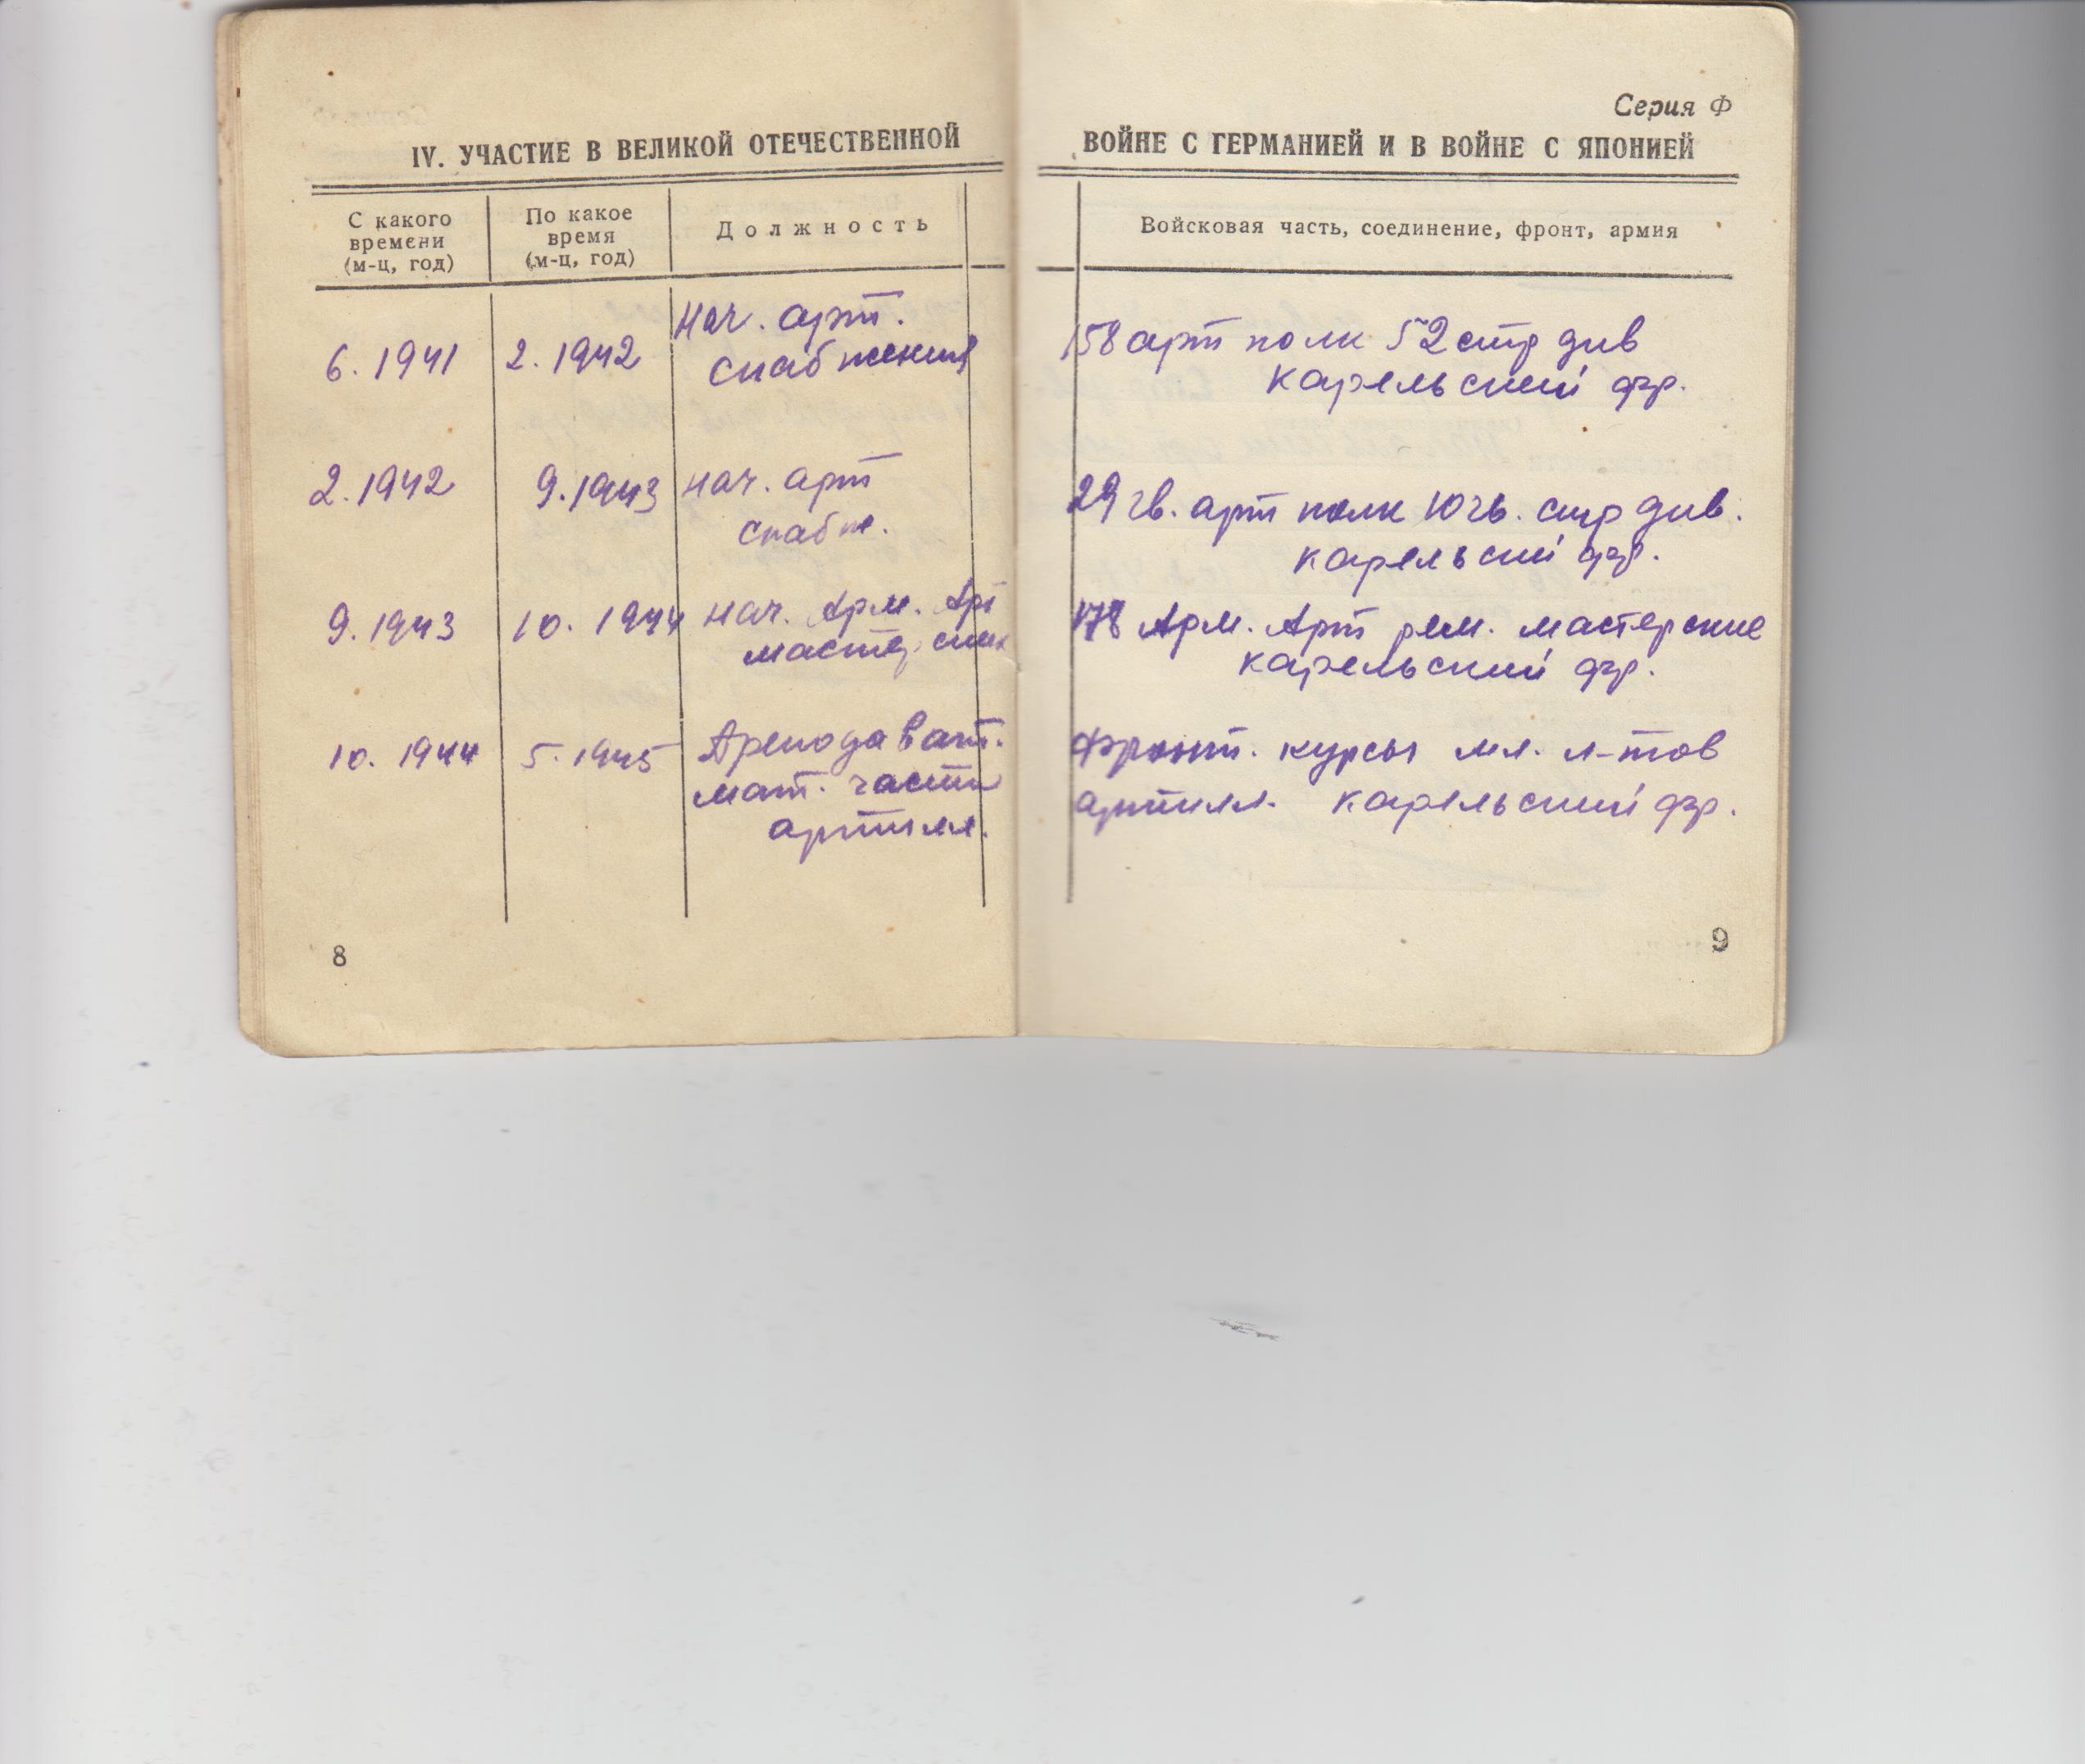 IV. УЧАСТИЕ В ВЕЛИКОЙ ОТЕЧЕСТВЕННОЙ
С какого
времени
(м-ц, год)
По какое
время
(м-ц, год)
Должность
6. 1941
2. 1942
Нач. арт.
снабжения
2. 1942
9. 1943
нач. арт
снабж.
9. 1943
10. 1944
нач. Арм. Арт
мастерских
10. 1944
5. 1945
Преподават.
мат. части
артилл.
8
Серия Ф
ВОЙНЕ С ГЕРМАНИЕЙ И В ВОЙНЕ С ЯПОНИЕЙ
Войсковая часть, соединение, фронт, армия
158 арт полк 52 стр див
карельский фр.
29 гв. арт полк 10 гв. стр див.
карельский фр.
178 Арм. Арт рем. мастерские
карельский фр.
Фронт. курсы мл. л-тов
артилл. карельский фр.
9